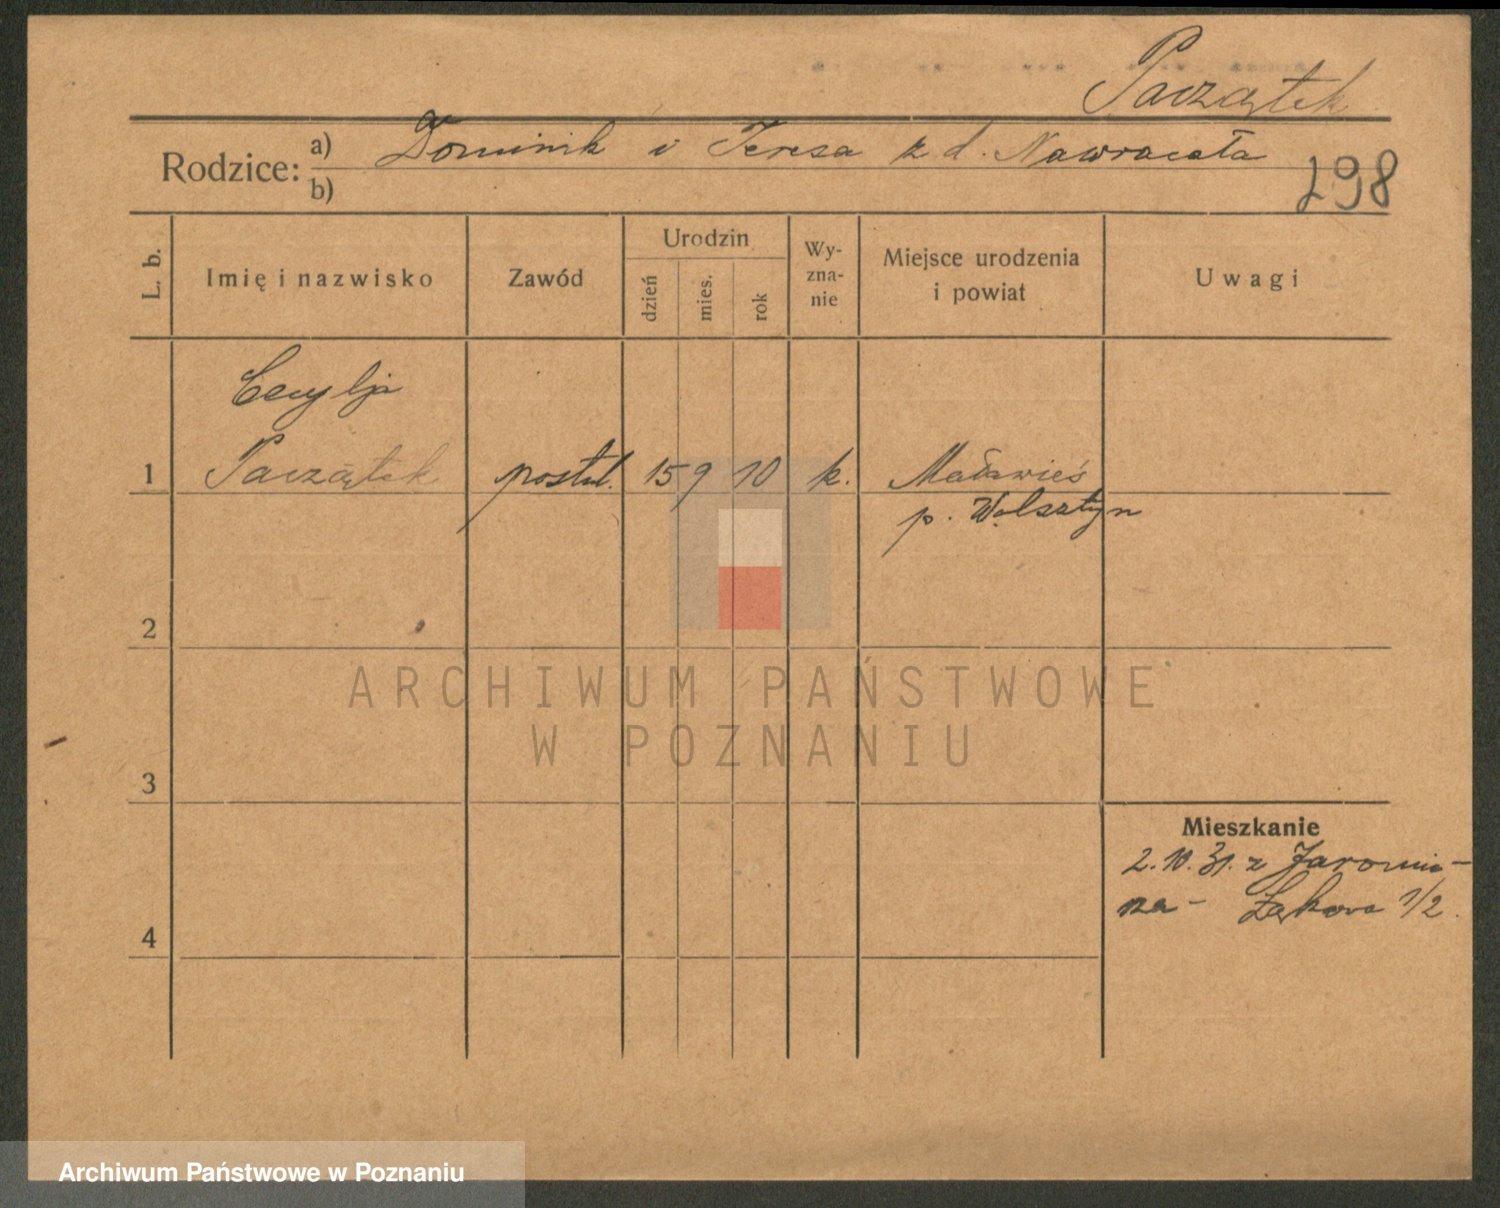 Paczątek
Rodzice: a) Dominik i Teresa z d. Nawracała
b)
298
L. b.
Imię i nazwisko
Zawód
Urodzin
dzień
mies.
rok
Wy-
zna-
nie
Miejsce urodzenia
i powiat
Uwagi
Cecylja
1 Paczątek postul. 15 9 10 k. Maławieś
p. Wolsztyn
2
3
4
Mieszkanie
2.10.31. z Jaromie-
rza - Łąkowa 1/2.
ARCHIWUM PAŃSTWOWE
W POZNANIU
Archiwum Państwowe w Poznaniu